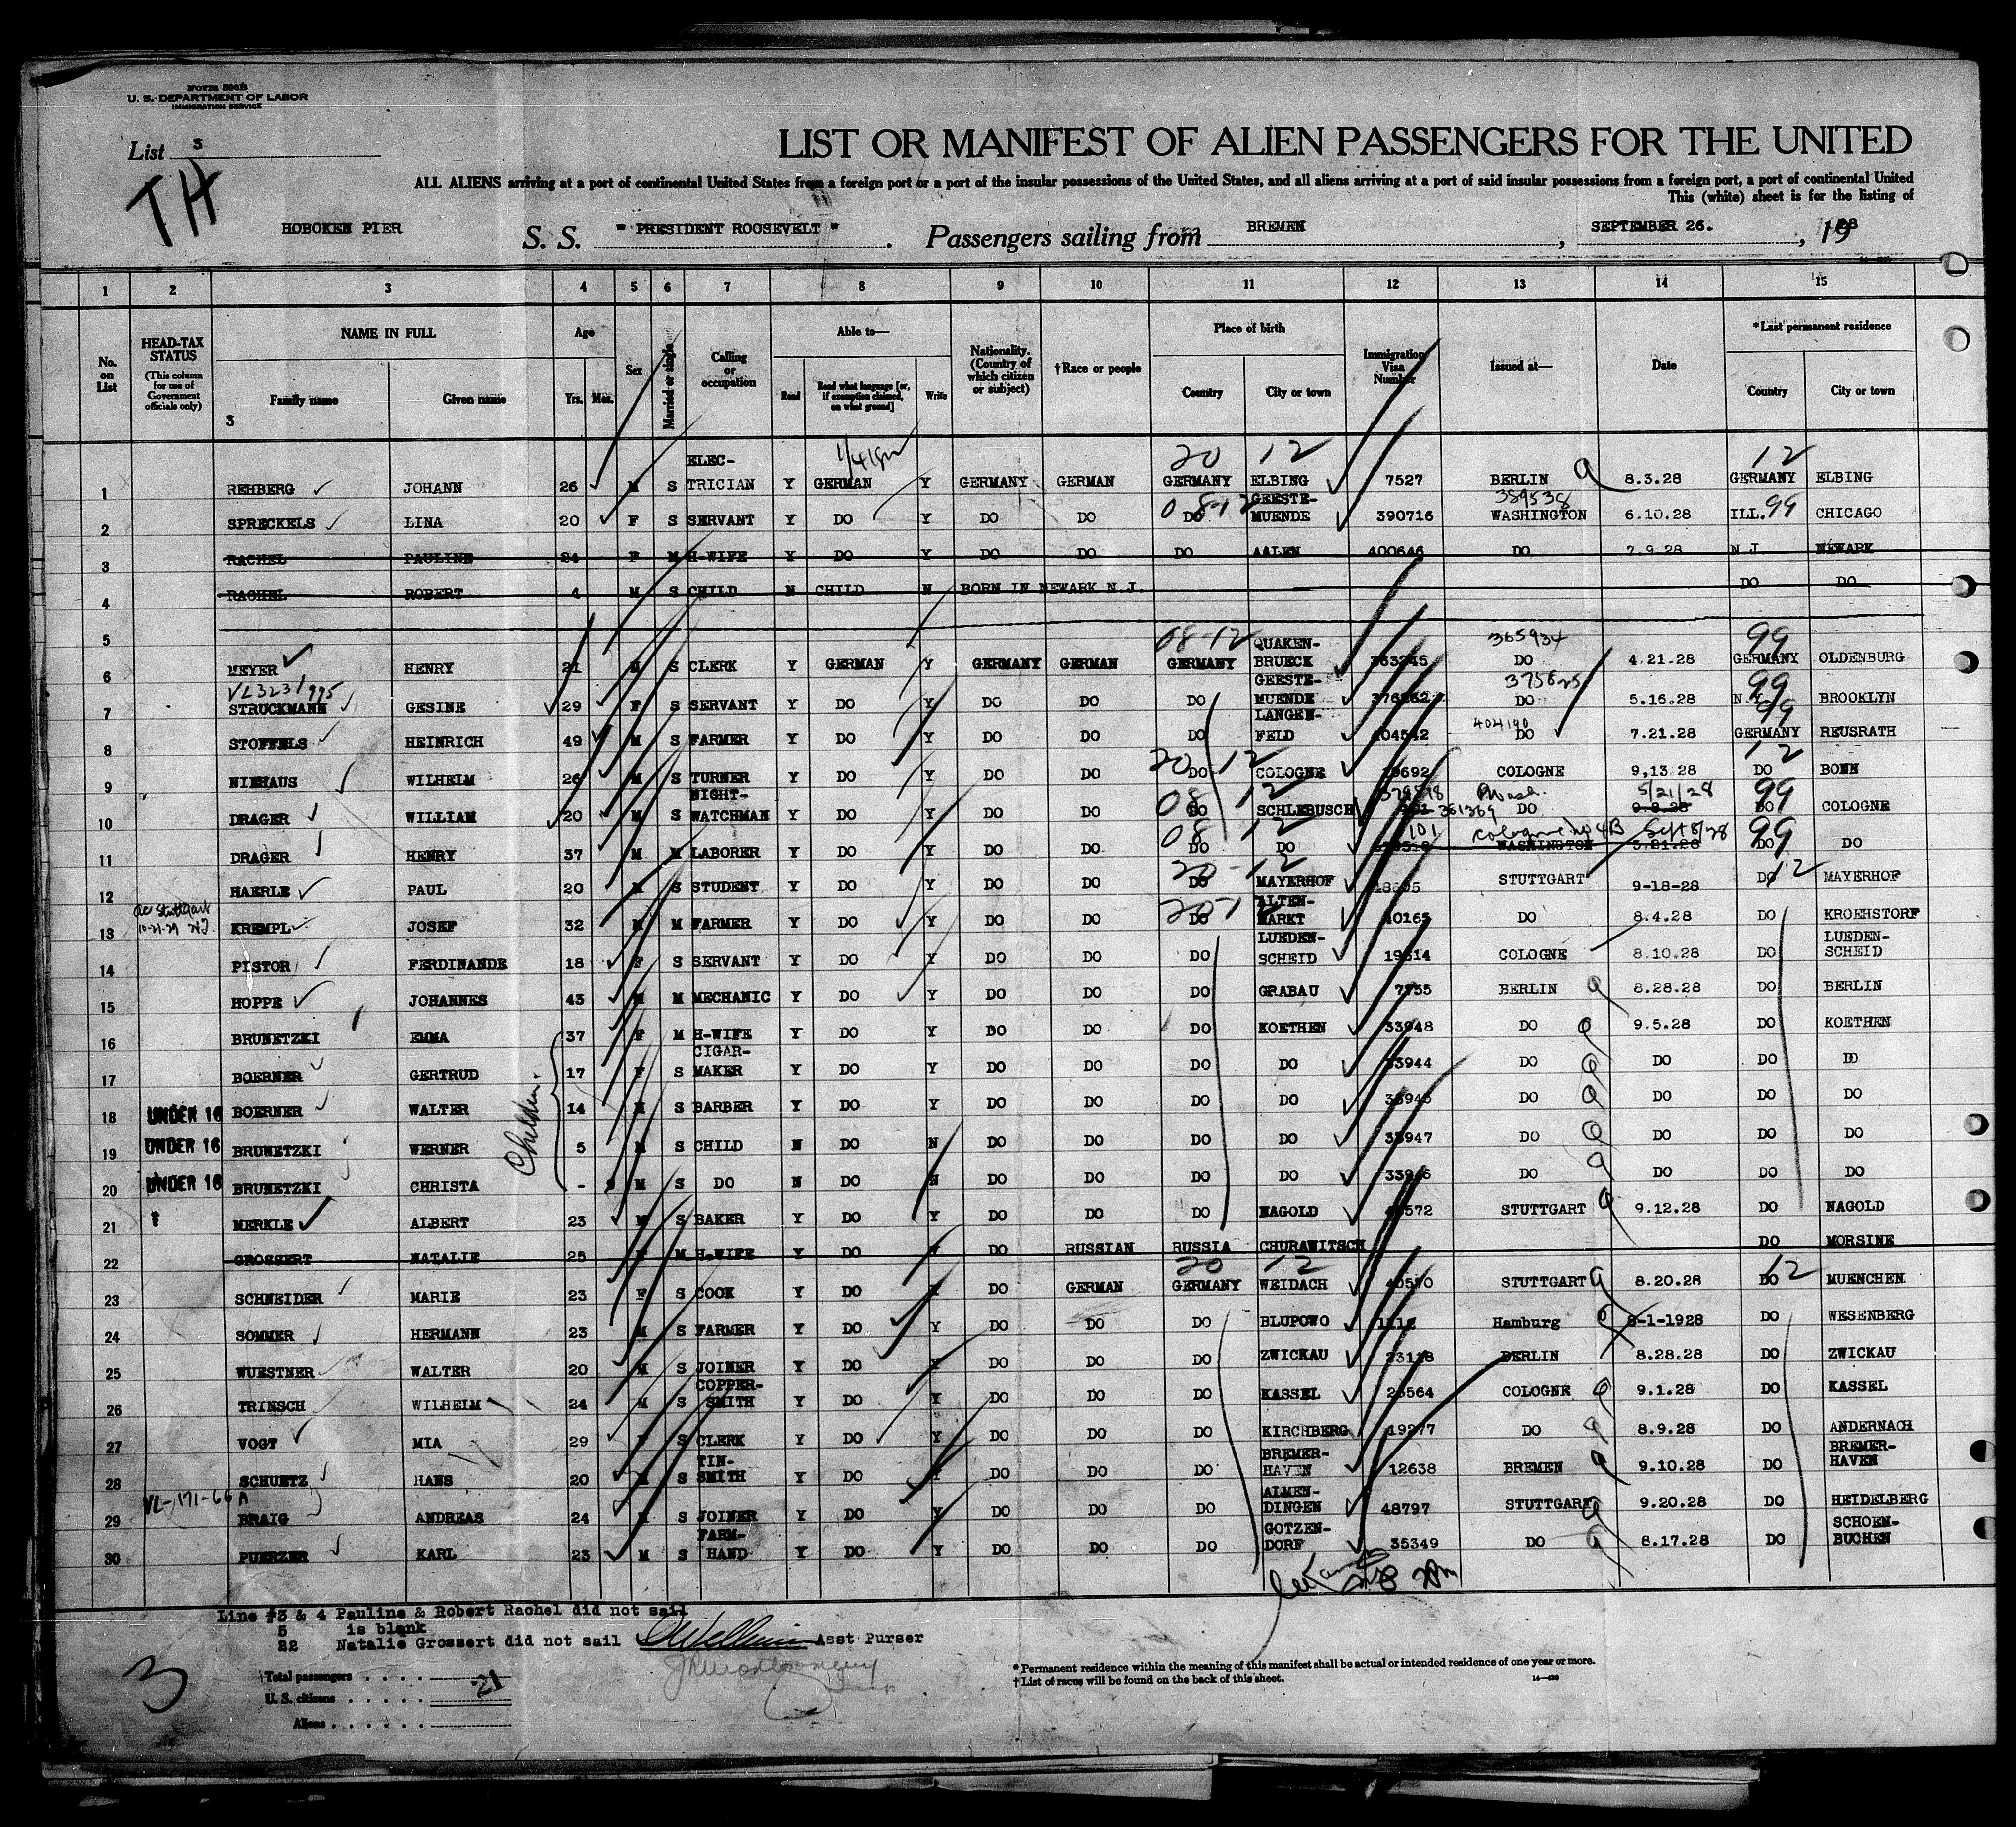 Form 500B
U. S. DEPARTMENT OF LABOR
IMMIGRATION SERVICE
List 3
TH
LIST OR MANIFEST OF ALIEN PASSENGERS FOR THE UNITED
ALL ALIENS arriving at a port of continental United States from a foreign port or a port of the insular possessions of the United States, and all aliens arriving at a port of said insular possessions from a foreign port, a port of continental United
This (white) sheet is for the listing of
HOBOKEN PIER S. S. " PRESIDENT ROOSEVELT ". Passengers sailing from BREMEN, SEPTEMBER 26., 1928
1 2 3 4 5 6 7 8 9 10 11 12 13 14 15
No. on List
HEAD-TAX STATUS (This column for use of Government officials only)
NAME IN FULL Family name Given name
Age Yrs. Mos.
Sex
Married or single
Calling or occupation
Able to— Read Read what language [or, if exemption claimed, on what ground] Write
Nationality. (Country of which citizen or subject)
†Race or people
Place of birth Country City or town
Immigration Visa Number
Issued at—
Date
*Last permanent residence Country City or town
3
20 12 12
1 REHBERG JOHANN 26 M S ELEC-TRICIAN Y GERMAN Y GERMANY GERMAN GERMANY ELBING 7527 BERLIN 8.3.28 GERMANY ELBING
389538
2 SPRECKELS LINA 20 F S SERVANT Y DO Y DO DO DO GEESTE-MUENDE 390716 WASHINGTON 6.10.28 ILL. 99 CHICAGO
3 RACHEL PAULINE 24 F M H-WIFE Y DO Y DO DO DO AALEN 400646 DO 7.9.28 N.J. NEWARK
4 RACHEL ROBERT 4 M S CHILD N CHILD N BORN IN NEWARK N.J. DO DO
5
08-12 365934 99
6 MEYER HENRY 21 M S CLERK Y GERMAN Y GERMANY GERMAN GERMANY QUAKEN-BRUECK 363245 DO 4.21.28 GERMANY OLDENBURG
VL323/995 99
7 STRUCKMANN GESINE 29 F S SERVANT Y DO Y DO DO DO GEESTE-MUENDE DO 5.16.28 BROOKLYN
404190 99
8 STOFFELS HEINRICH 49 M S FARMER Y DO Y DO DO DO LANGEN-FELD 404542 DO 7.21.28 GERMANY REUSRATH
20 12 12
9 NIEHAUS WILHELM 26 M S TURNER Y DO Y DO DO DO COLOGNE COLOGNE 9,13.28 DO BONN
08 12 Wash. 5/21/28 99
10 DRAGER WILLIAM 20 M S NIGHT-WATCHMAN Y DO Y DO DO DO SCHLEBUSCH 361369 DO DO COLOGNE
08 12 101 Cologne No 4B Sept 8/28 99
11 DRAGER HENRY 37 M M LABORER Y DO Y DO DO DO DO WASHINGTON 5.21.28 DO DO
20-12 12
12 HAERLE PAUL 20 M S STUDENT Y DO Y DO DO DO MAYERHOF STUTTGART 9-18-28 DO MAYERHOF
20-12
13 KREMPL JOSEF 32 M M FARMER Y DO Y DO DO DO ALTEN-MARKT 40165 DO 8.4.28 DO KROEHSTORF
14 PISTOR FERDINANDE 18 F S SERVANT Y DO Y DO DO DO LUEDEN-SCHEID 19614 COLOGNE 8.10.28 DO LUEDEN-SCHEID
15 HOPPE JOHANNES 43 M M MECHANIC Y DO Y DO DO DO GRABAU 7755 BERLIN 8.28.28 DO BERLIN
16 BRUNETZKI EMMA 37 F M H-WIFE Y DO Y DO DO DO KOETHEN 33948 DO 9.5.28 DO KOETHEN
Children.
17 BOERNER GERTRUD 17 F S CIGAR-MAKER Y DO Y DO DO DO DO 33944 DO DO DO DO
18 UNDER 16 BOERNER WALTER 14 M S BARBER Y DO Y DO DO DO DO DO DO DO DO
19 UNDER 16 BRUNETZKI WERNER 5 M S CHILD N DO N DO DO DO DO 33947 DO DO DO DO
20 UNDER 16 BRUNETZKI CHRISTA - M S DO N DO N DO DO DO DO 33946 DO DO DO DO
21 MERKLE ALBERT 23 M S BAKER Y DO Y DO DO DO NAGOLD STUTTGART 9.12.28 DO NAGOLD
22 GROSSERT NATALIE 25 F M H-WIFE Y DO Y DO RUSSIAN RUSSIA CHURAWITSCH DO MORSINE
20 12 12
23 SCHNEIDER MARIE 23 F S COOK Y DO Y DO GERMAN GERMANY WEIDACH 40570 STUTTGART 8.20.28 DO MUENCHEN
24 SOMMER HERMANN 23 M S FARMER Y DO Y DO DO DO BLUPOWO Hamburg 8-1-1928 DO WESENBERG
25 WUESTNER WALTER 20 M S JOINER Y DO Y DO DO DO ZWICKAU 23118 BERLIN 8.28.28 DO ZWICKAU
26 TRINSCH WILHELM 24 M S COPPER-SMITH Y DO Y DO DO DO KASSEL 25564 COLOGNE 9.1.28 DO KASSEL
27 VOGT MIA 29 F S CLERK Y DO Y DO DO DO KIRCHBERG 19277 DO 8.9.28 DO ANDERNACH
28 SCHUETZ HANS 20 M S TIN-SMITH Y DO Y DO DO DO BREMER-HAVEN 12638 BREMEN 9.10.28 DO BREMER-HAVEN
VL-171-66A
29 BRAIG ANDREAS 24 M S JOINER Y DO Y DO DO DO ALMEN-DINGEN 48797 STUTTGART 9.20.28 DO HEIDELBERG
30 PUERZER KARL 23 M S FARM-HAND Y DO Y DO DO DO GOTZEN-DORF 35349 DO 8.17.28 DO SCHOEN-BUCHEN
Line #3 & 4 Pauline & Robert Rachel did not sail
5 is blank
22 Natalie Grossert did not sail Asst Purser
3
Total passengers . . . . 21
U. S. citizens . . . . .
Aliens . . . . . .
* Permanent residence within the meaning of this manifest shall be actual or intended residence of one year or more.
† List of races will be found on the back of this sheet.